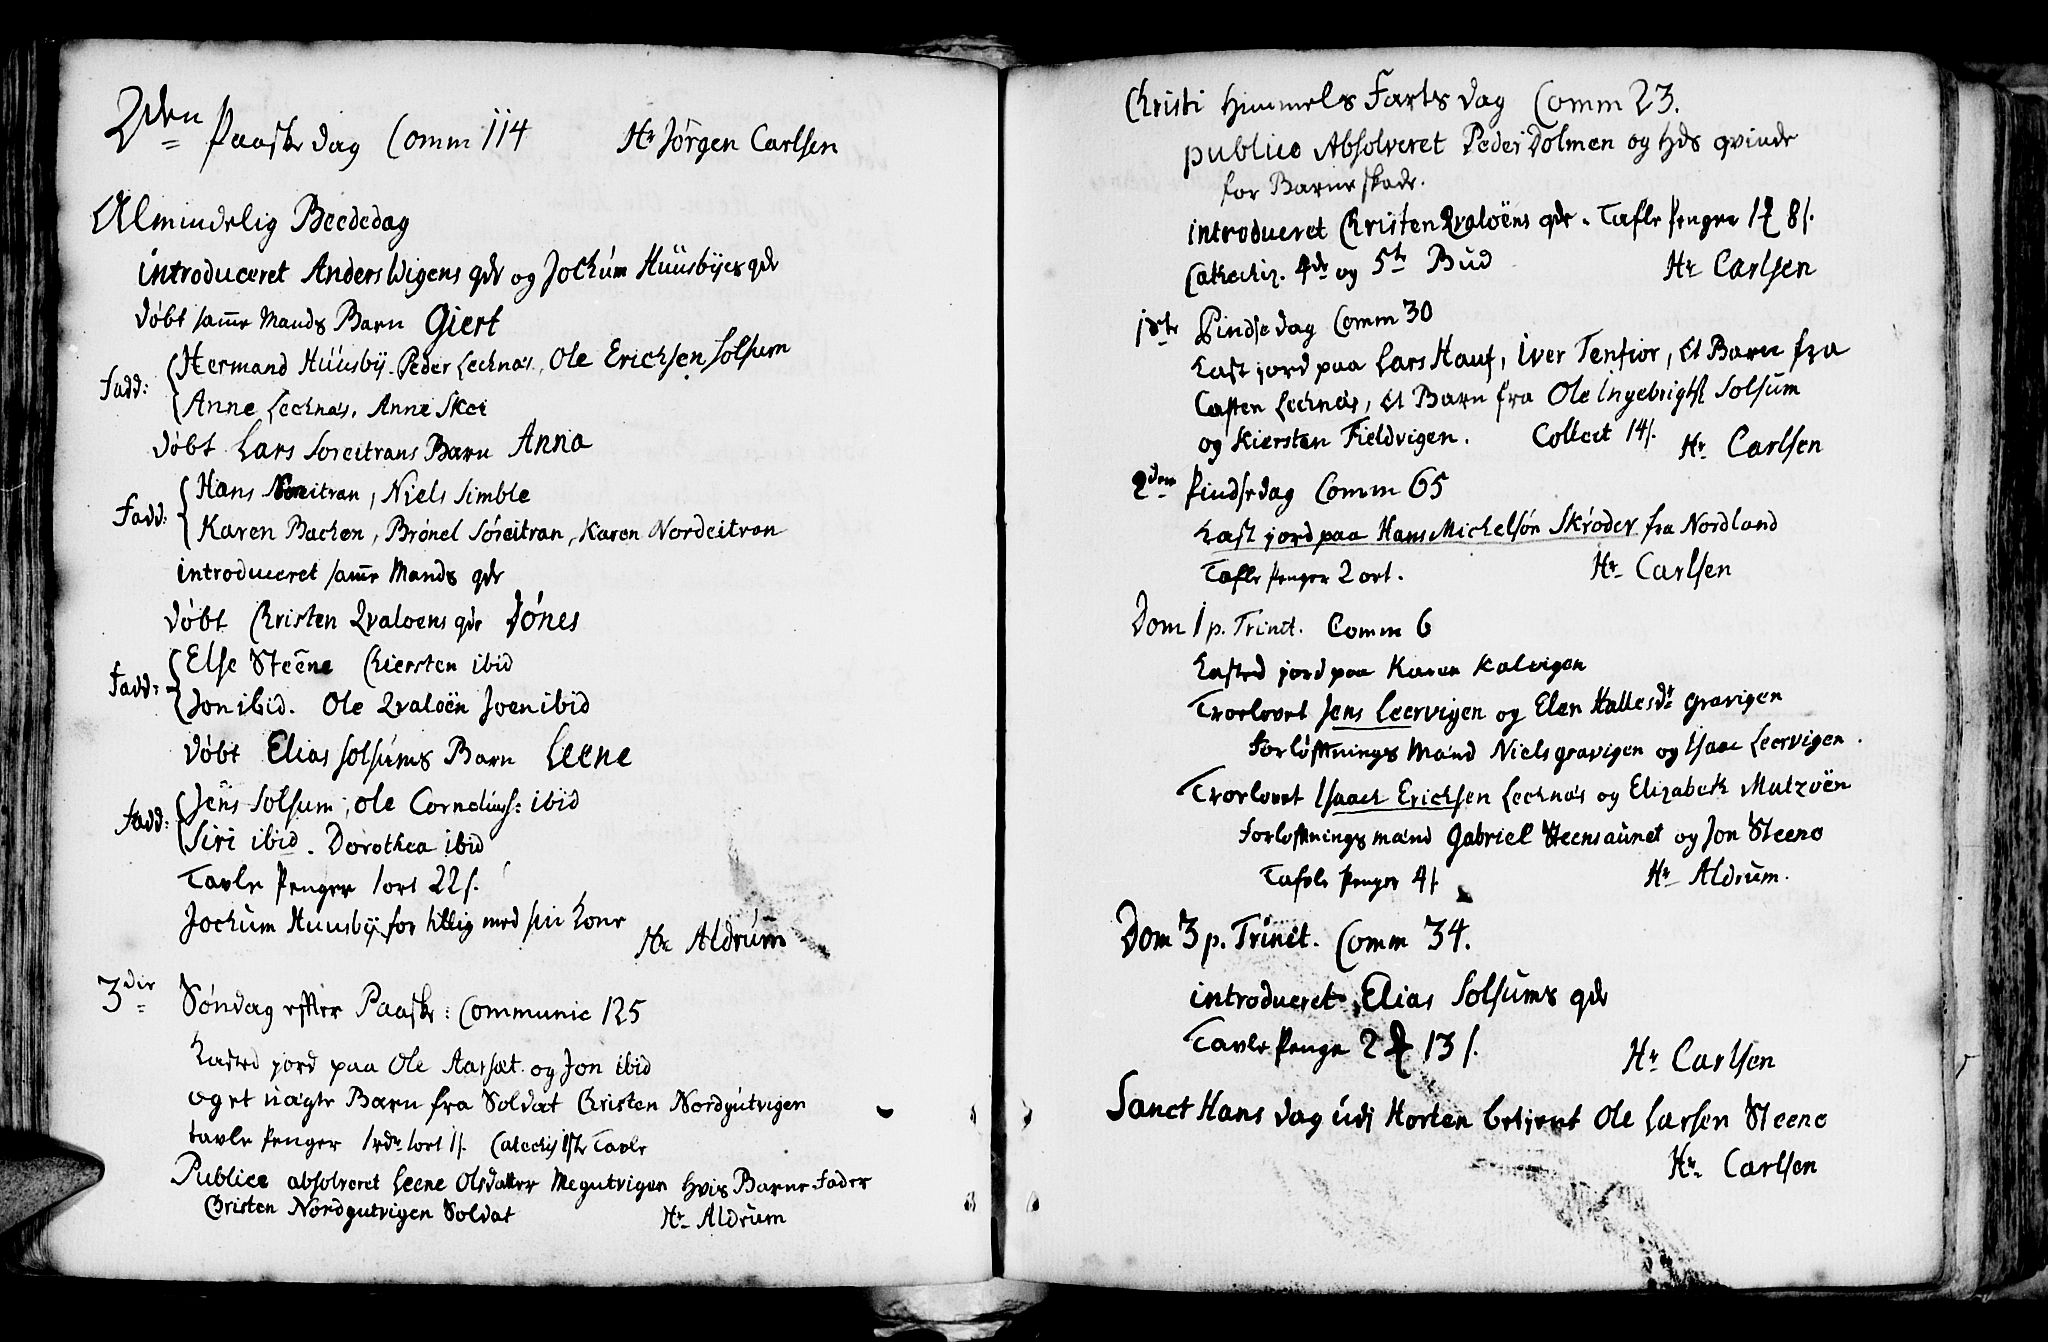 2den Paaske dag Comm 114 Hr Jørgen Carlsen
Almindelig Beededag
introduceret Anders Wigens qdr og Jochum Huusbyes qdr
døbt samme Mands Barn Giert
Fadd: Hermand Huusby. Peder Lecknæs, Ole Erichsen Solsum
Anne Lecknæs. Anne Skei
døbt Lars Søreitrans Barn Anna
Fadd: Hans Noreitran, Niels Simble
Karen Bachen, Brønel Søreitran, Karen Nordeitran
introduceret samme Mands qdr
døbt Christen Qvaloens qdr Dønes
Fadd: Else Steene Chiersten ibid
Jon ibid. Ole Qvaloën Joen ibid
døbt Elias Solsums Barn Leene
Fadd: Jens Solsum, Ole Corneliuss: ibid
Siri ibid. Dorothea ibid
Tavle Penger 1 ort 22 s.
Jochum Huusby for tillig med sin Kone
Hr Aldrum
3die Søndag efter Paaske: Communic 125
Kasted jord paa Ole Aarsæt og Jon ibid
og et uægte Barn fra Soldat Christen Nordgutvigen
tavle Penger 1 rdr 1 ort 1 s. Catechis 1ste Tavle
Publice absolveret Leene Olsdatter Megutvigen hvis Barne Fader
Christen Nordgutvigen Soldat Hr Aldrum
Christi Himmels Farts dag Comm 23.
publice Absolveret Peder Dolmen og hds qvinde
for Barne skade.
introduceret Christen Qvaloëns qdr. Tafle Penger 1 8 s.
Catechiz. 4de og 5te Bud Hr Carlsen
1ste Pindse dag Comm 30
Kast jord paa Lars Hauf, Iver Tenfior, Et Barn fra
Casten Lecknæs, Et Barn fra Ole Ingebrights Solsum
og Kiersten Fieldvigen. Collect 14 s. Hr Carlsen
2den Pindse dag Comm 65
Kast jord paa Hans Michelsøn Skrøder fra Nordland
Tafle Penger 2 ort. Hr Carlsen
Dom 1 p. Trinit. Comm 6
Kasted jord paa Karen Kalvigen
Troelovet Jens Leervigen og Elen Hallesdr Gravigen
Forløftnings Mænd Niels gravigen og Isaac Leervigen.
Troelovet Isaach Erichsen Lecknæs og Elizabeth Mutzoën
Forløftnings mænd Gabriel Steensaunet og Jon Steene
Tafle Penger 4 s. Hr Aldrum.
Dom 3 p. Trinit. Comm 34.
introduceret Elias Solsums qdr
Tavle Penge 2 13 s. Hr Carlsen
Sanct Hans dag udj Horten betjent Ole Larsen Steene
Hr Carlsen